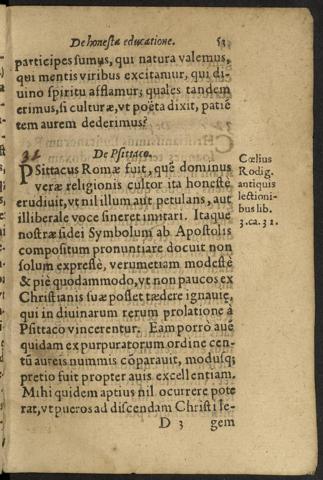 De honesta educatione. 53
participes sumus, qui natura valemus,
qui mentis viribus excitamur, qui di-
uino spiritu afflamur; quales tandem
erimus, si culturæ, vt poëta dixit, patiē
tem aurem dederimus?
31
De Psittaco.
PSittacus Romæ fuit, quē dominus
veræ religionis cultor ita honestè
erudiuit, vt nil illum aut petulans, aut
illiberale voce sineret imitari. Itaque
nostræ fidei Symbolum ab Apostolis
compositum pronuntiare docuit non
solum expressè, verumetiam modestè
& piè quodammodo, vt non paucos ex
Christianis suæ posset tædere ignauię,
qui in diuinarum rerum prolatione à
Psittaco vincerentur. Eam porro auē
quidam ex purpuratorum ordine cen-
tū aureis nummis cōparauit, modusq;
pretio fuit propter auis excellentiam.
Mihi quidem aptius nil ocurrere pote
rat, vt pueros ad discendam Christi le-
D 3 gem
Cœlius
Rodig.
antiquis
lectioni-
bus lib.
3. ca. 31.